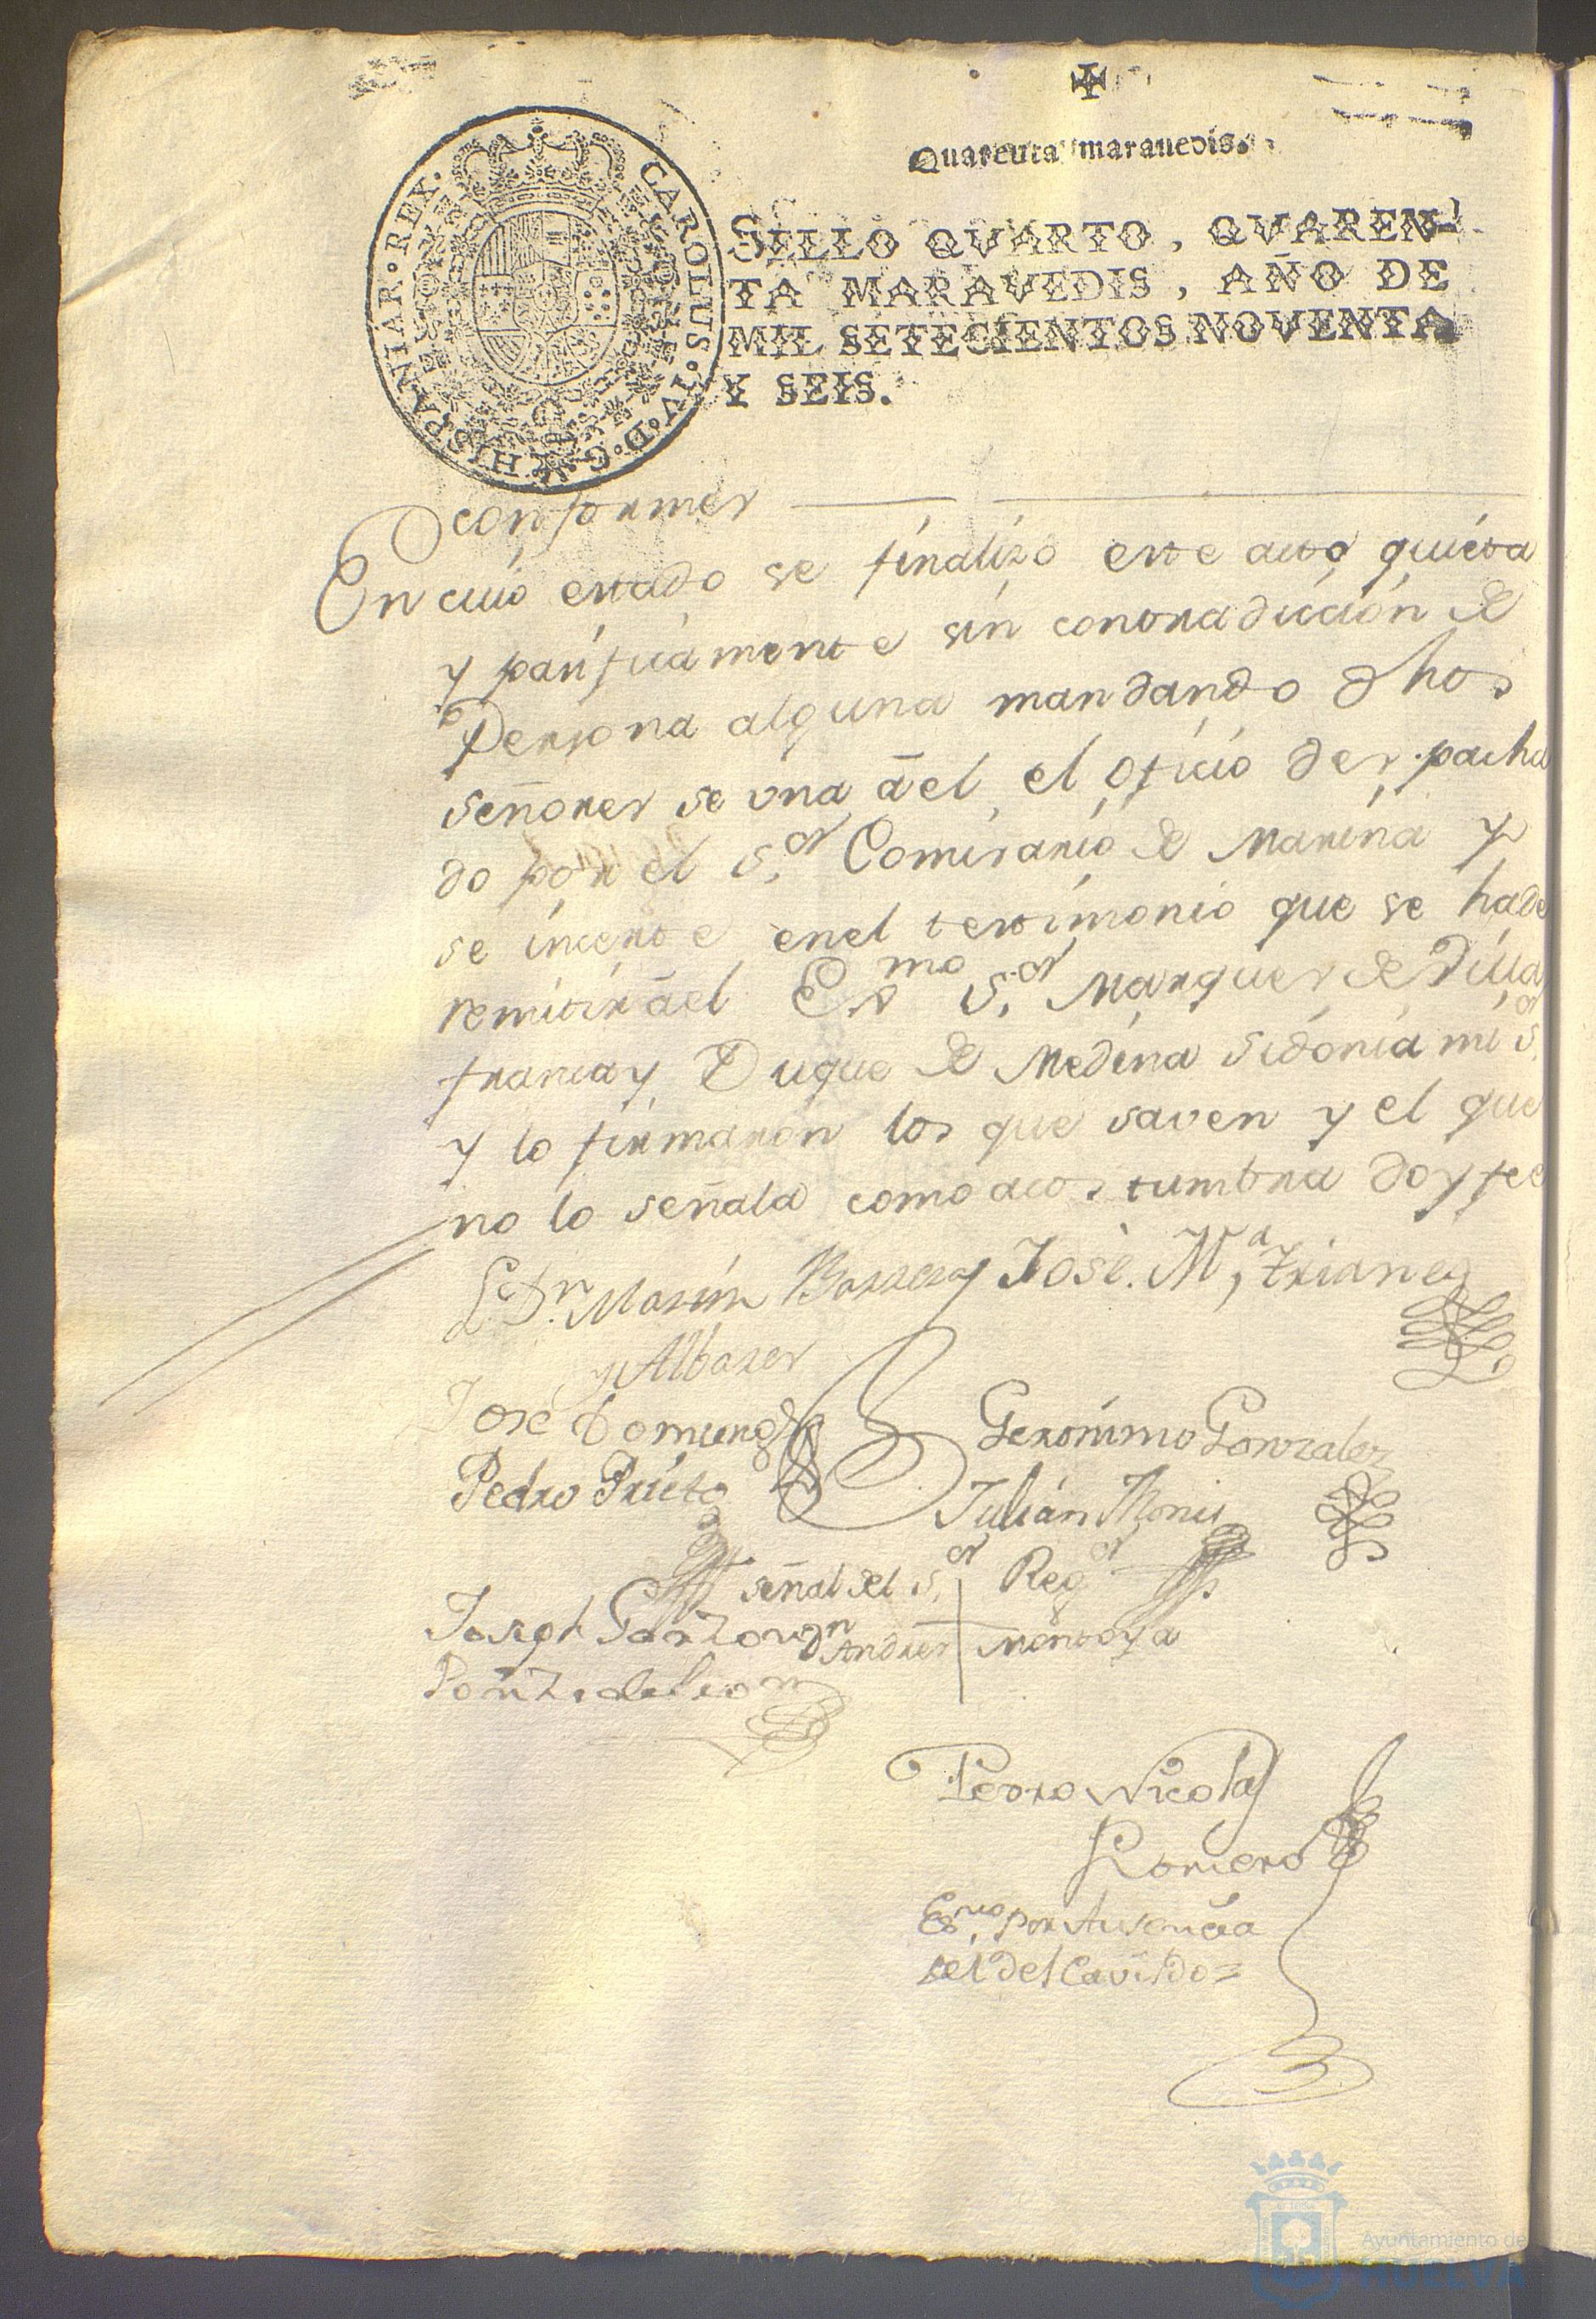 ✠
Quarenta maravedis.
CAROLUS·IV·D·G·HISPANIAR·REX·
SELLO QVARTO, QVAREN-
TA MARAVEDIS, AÑO DE
MIL SETECIENTOS NOVENTA
Y SEIS.
conformes
En cuio estado se finalizó este acto quieta
y pasificamente sin contradiccion de
Persona alguna mandando dhos
señores se una ael el oficio despacha
do por el S.or Comisario de Marina y
se incerte enel testimonio que se hade
remitir ael Exmo S.or Marques de Villa
franca y Duque de Medina Sidonia mi S.or
y lo firmaron los que saven y el que
no lo señala como acostumbra doy fee
Lcdo. Dn. Martin Barrera José. Ma, Trianes
y Albares
José Domingz
Geronimo Gonzalez
Pedro Prieto
Julián Monis
señal del S.or Reg.or
Joseph Garzon
Andres Montoya
Ponze de leon
Pedro Nicolas
Romero
Esno. por Ausencia
del del Cavildo=
Ayuntamiento de
HUELVA